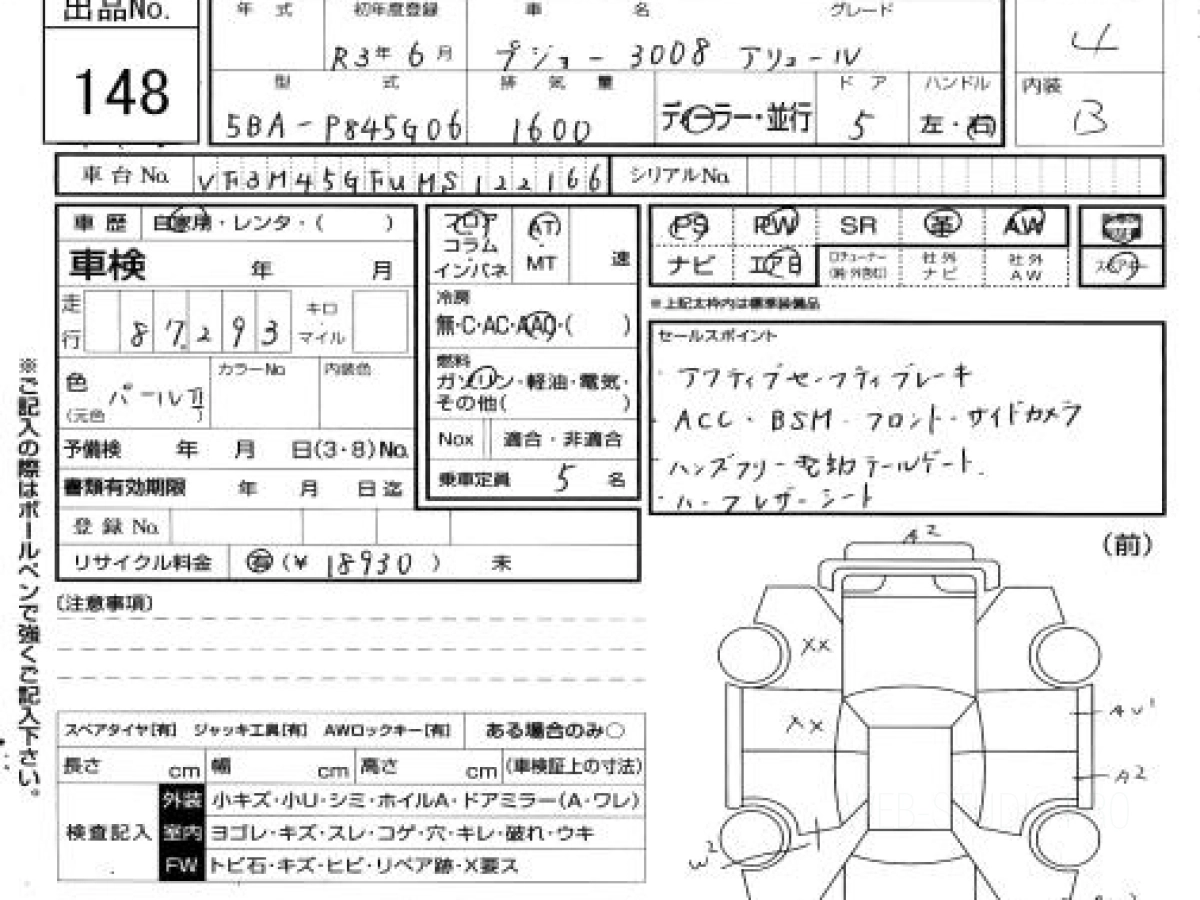 出品No.
148
年 式
初年度登録
車 名
グレード
R3年 6月
プジョー 3008 アリュール
4
型 式
排 気 量
ディーラー・並行
ド ア
ハンドル
内装
5BA-P845G06
1600
5
左・右
B
車台No.
VF3M45GFUMS122166
シリアルNo.
車 歴 自家用・レンタ・( )
フロア
コラム
インパネ
AT
MT
速
PS
PW
SR
革
AW
車検 年 月
ナビ
エアB
社外
ナビ
社外
AW
スペアキー
走行
87,293
キロ
マイル
冷房
無・C・AC・AAC・( )
※上記太枠内は標準装備品
セールスポイント
色
(元色)
パール
カラーNo.
内装色
燃料
ガソリン・軽油・電気・
その他( )
・アクティブセーフティブレーキ
・ACC・BSM・フロント・サイドカメラ
・ハンズフリー電動テールゲート.
・ハーフレザーシート
予備検 年 月 日(3・8)No.
Nox 適合・非適合
書類有効期限 年 月 日迄
乗車定員 5 名
登録No.
リサイクル料金 有(¥ 18930 ) 未
(注意事項)
※ご記入の際はボールペンで強くご記入下さい。
スペアタイヤ[有] ジャッキ工具[有] AWロックキー[有] ある場合のみ○
長さ cm 幅 cm 高さ cm (車検証上の寸法)
検査記入
外装 小キズ・小U・シミ・ホイルA・ドアミラー(A・ワレ)
室内 ヨゴレ・キズ・スレ・コゲ・穴・キレ・破れ・ウキ
FW トビ石・キズ・ヒビ・リペア跡・X要ス
(前)
A2
XX
XX
AU1
A2
W2